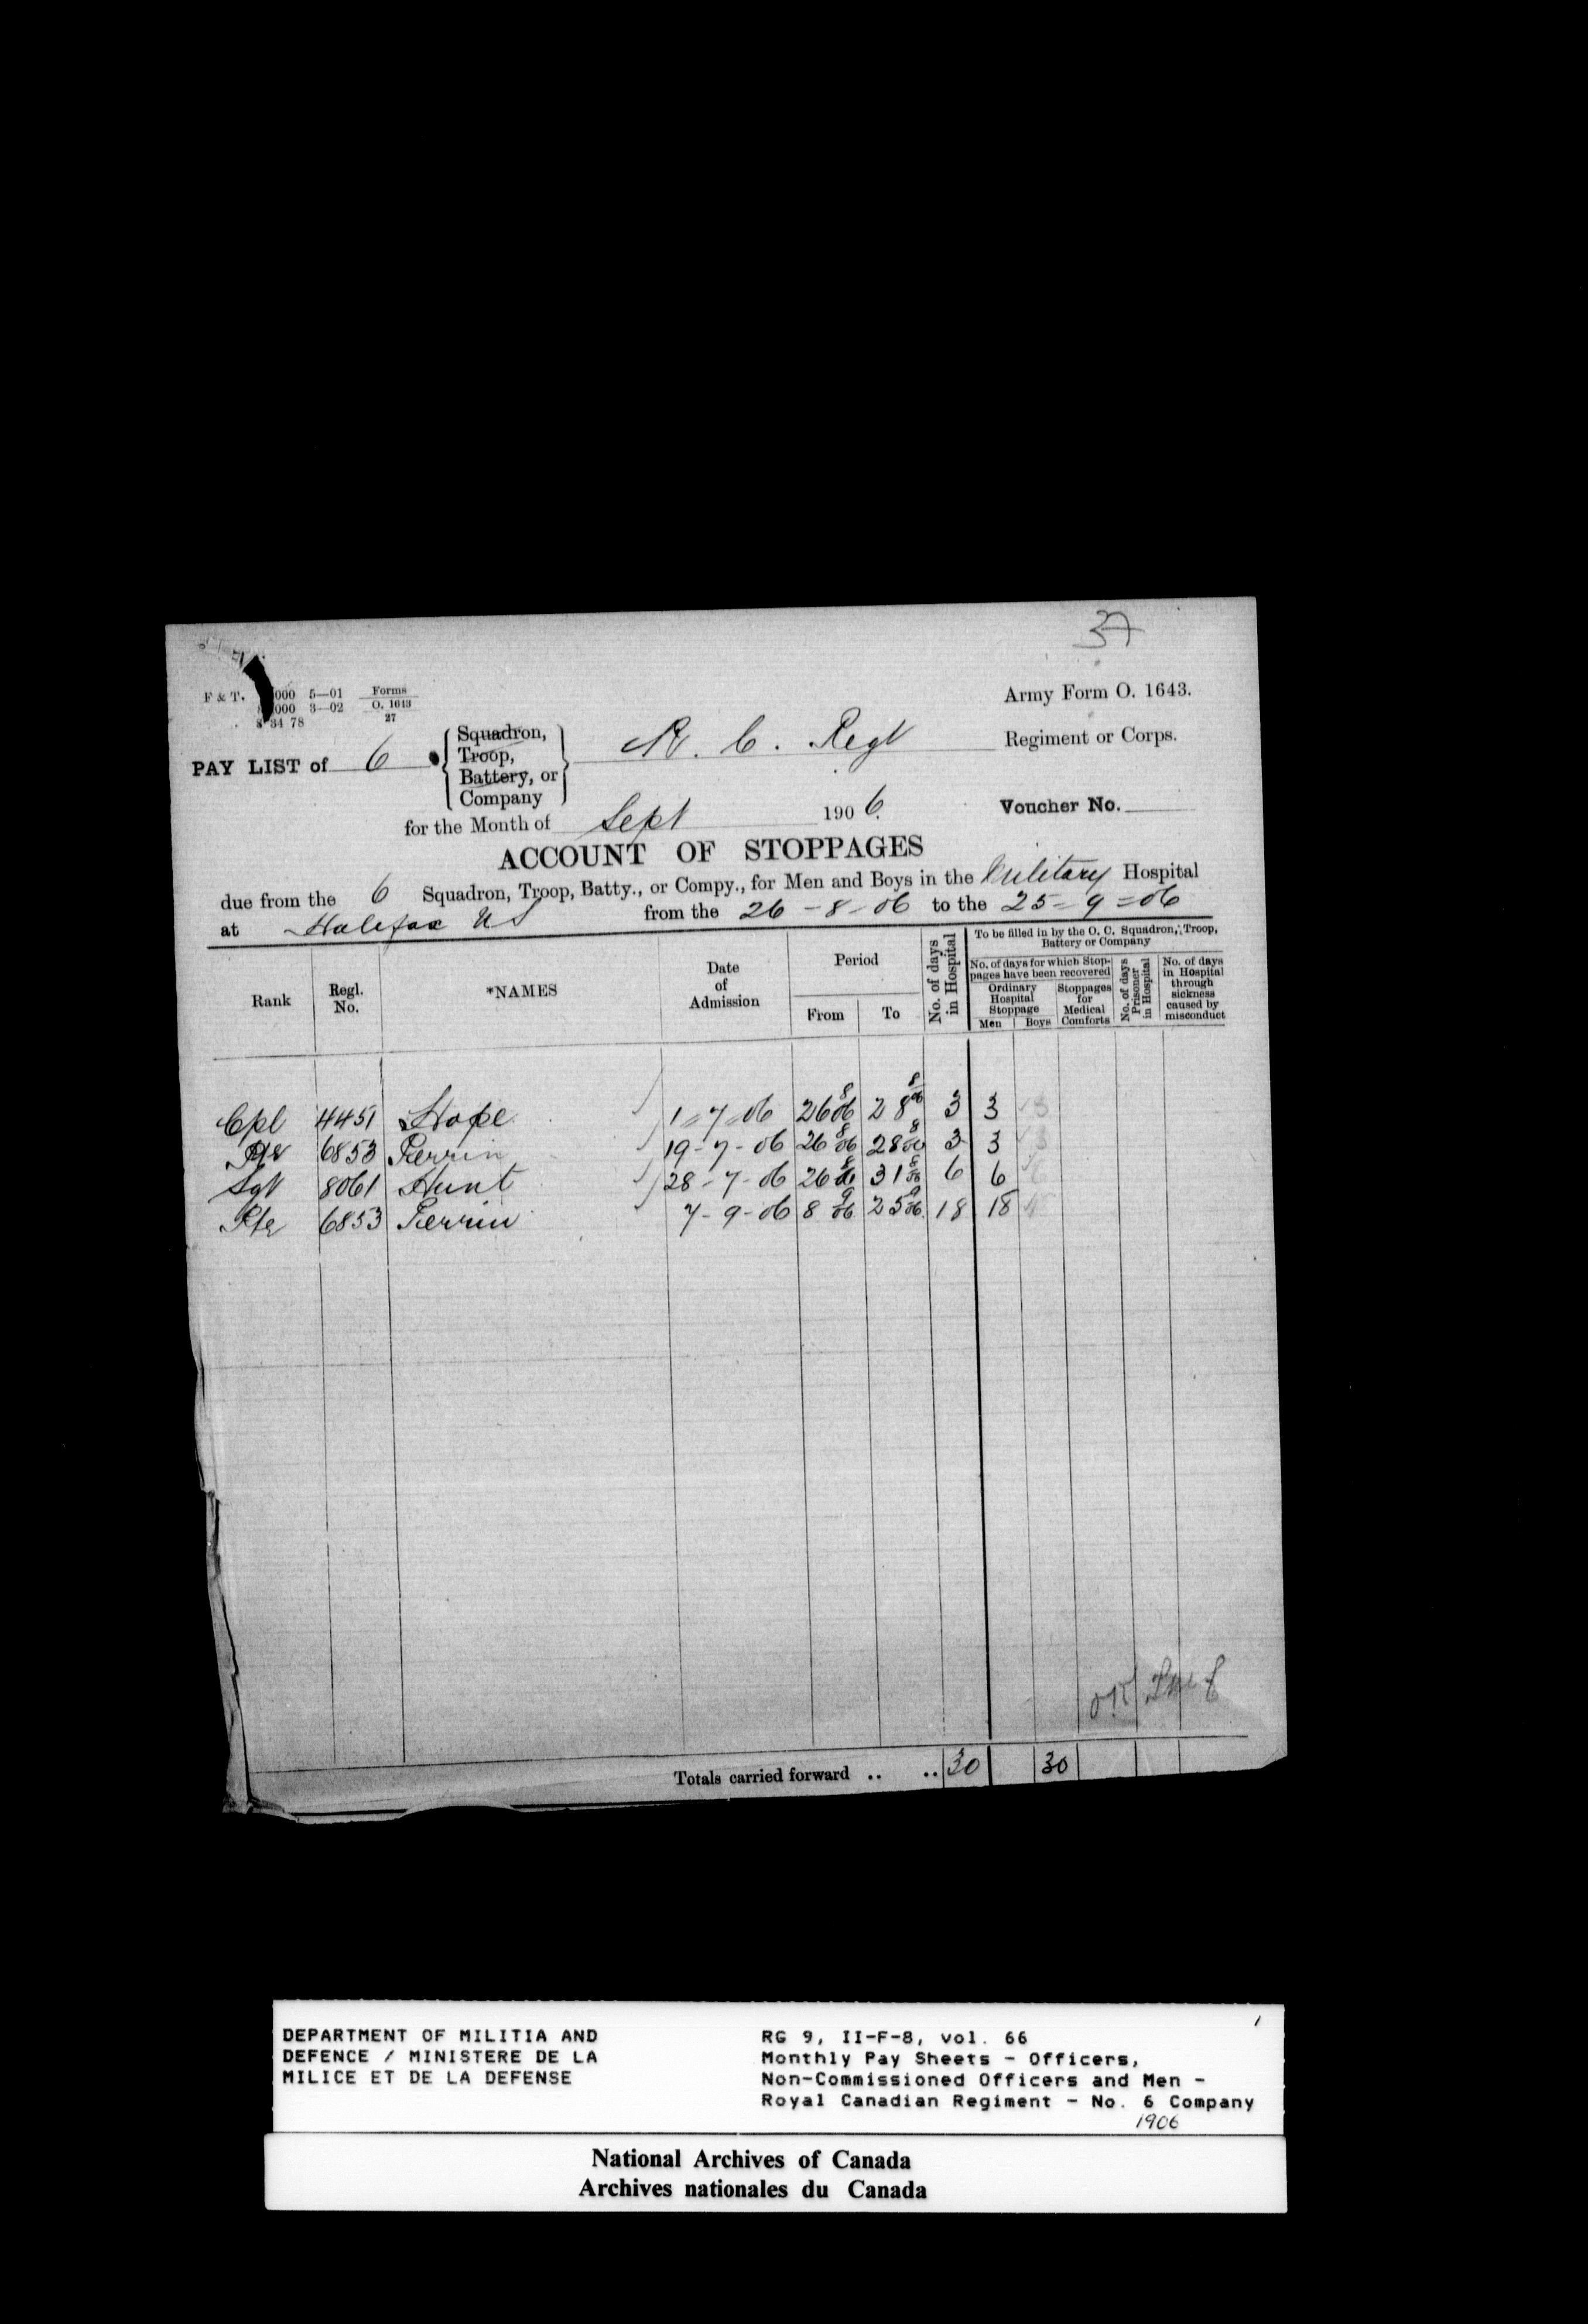 37
F & T. 000 5—01 Forms
000 3—02 O. 1643
34 78 27
Army Form O. 1643.
PAY LIST of 6 Squadron, Troop, Battery, or Company R. C. Regt Regiment or Corps.
for the Month of Sept 1906. Voucher No.
ACCOUNT OF STOPPAGES
due from the 6 Squadron, Troop, Batty., or Compy., for Men and Boys in the Military Hospital
at Halifax NS from the 26-8-06 to the 25-9-06
To be filled in by the O. C. Squadron, Troop, Battery or Company
Rank Regl. No. *NAMES Date of Admission Period From To No. of days in Hospital
No. of days for which Stoppages have been recovered
Ordinary Hospital Stoppage Men Boys
Stoppages for Medical Comforts
No. of days Prisoner in Hospital
No. of days in Hospital through sickness caused by misconduct
Cpl 4451 Hope 1-7-06 26 8/06 28 8/06 3 3
Pte 6853 Perrin 19-7-06 26 8/06 28 8/06 3 3
Sgt 8061 Hunt 28-7-06 26 8/06 31 8/06 6 6
Pte 6853 Perrin 7-9-06 8 9/06 25 9/06 18 18
OK
Totals carried forward .. .. 30 30
1
DEPARTMENT OF MILITIA AND
DEFENCE / MINISTERE DE LA
MILICE ET DE LA DEFENSE
RG 9, II-F-8, vol. 66
Monthly Pay Sheets - Officers,
Non-Commissioned Officers and Men -
Royal Canadian Regiment - No. 6 Company
1906
National Archives of Canada
Archives nationales du Canada